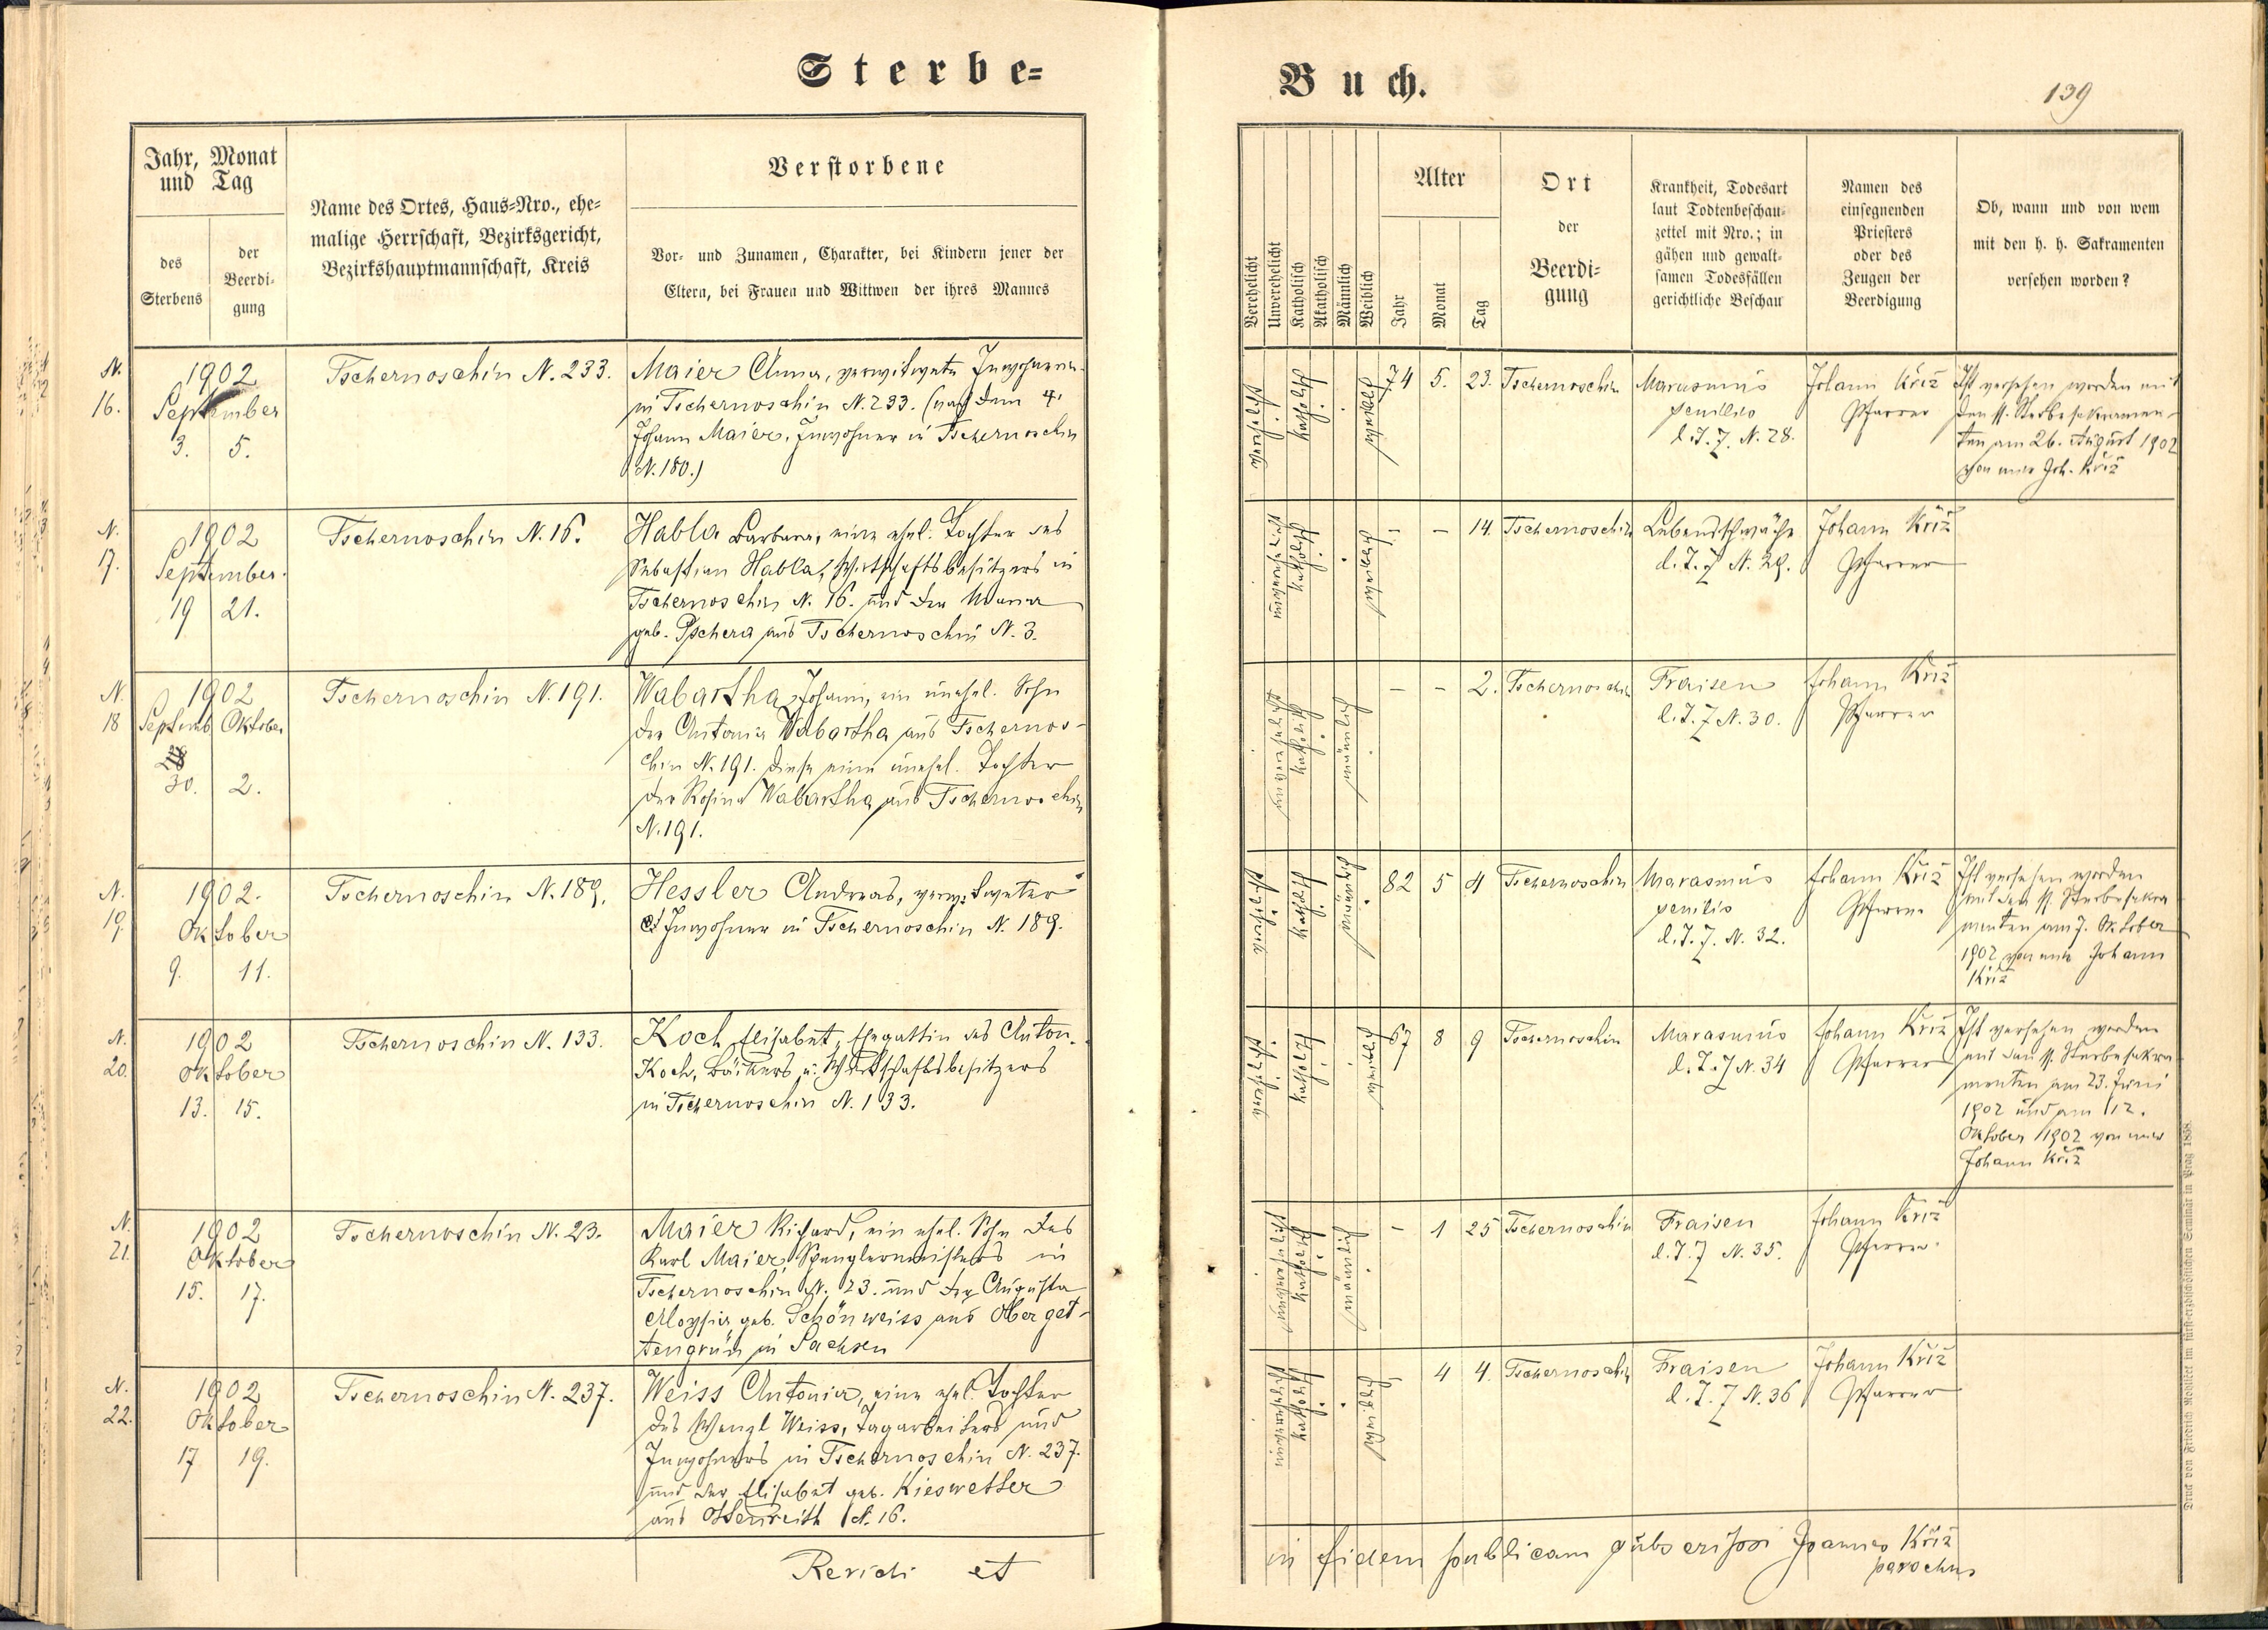 Sterbe=
Jahr, Monat
und Tag
des
Sterbens
der
Beerdi-
gung
Name des Ortes, Haus=Nro., ehe=
malige Herrschaft, Bezirksgericht,
Bezirkshauptmannschaft, Kreis
Verstorbene
Vor- und Zunamen, Charakter, bei Kindern jener der
Eltern, bei Frauen und Wittwen der ihres Mannes
N.
16.
1902
September
3. 5.
Tschernoschin N. 233.
Maier Anna, verwitwete Inwohnerin
in Tschernoschin N. 233. (nach dem
Johann Maier, Inwohner in Tschernoschin
N. 180.)
N.
17.
1902
September
19 21.
Tschernoschin N. 16.
Habla Barbara, eine ehel. Tochter des
Sebastian Habla, Wirtschaftsbesitzers in
Tschernoschin N. 16. und der Maria
geb. Pschera aus Tschernoschin N. 3.
N.
18
1902
Septemb Oktober
30. 2.
Tschernoschin N. 191.
Wabartha Johann, ein unehel. Sohn
der Antonia Wabartha aus Tschernos-
chin N. 191. diese eine unehel. Tochter
der Rosina Wabartha aus Tschernoschin
N. 191.
N.
19.
1902.
Oktober
9. 11.
Tschernoschin N. 189.
Hessler Andreas, verwitweter
Inwohner in Tschernoschin N. 189.
N.
20.
1902
Oktober
13. 15.
Tschernoschin N. 133.
Koch Elisabet, Ehegattin des Anton
Koch, Bäckers u. Wirtschaftsbesitzers
in Tschernoschin N. 133.
N.
21.
1902
Oktober
15. 17.
Tschernoschin N. 23.
Maier Richard, ein ehel. Sohn des
Karl Maier, Spenglermeisters in
Tschernoschin N. 23. und der Augusta
Aloysia, geb. Schönweiss aus Oberget-
tengrün in Sachsen
N.
22.
1902
Oktober
17 19.
Tschernoschin N. 237.
Weiss Antonia, eine ehel. Tochter
des Wenzl Weiss, Tagarbeiters und
Inwohners in Tschernoschin N. 237.
und der Elisabet geb. Kieswetter
aus Ottenreith N. 16.
Revidi et
Buch.
139
Verehelicht
Unverehelicht
Katholisch
Akatholisch
Männlich
Weiblich
Alter
Jahr
Monat
Tag
Ort
der
Beerdi=
gung
Krankheit, Todesart
laut Todtenbeschau-
zettel mit Nro.; in
gähen und gewalt-
samen Todesfällen
gerichtliche Beschau
Namen des
einsegnenden
Priesters
oder des
Zeugen der
Beerdigung
Ob, wann und von wem
mit den h. h. Sakramenten
versehen worden?
verehelicht
katholisch
weiblich
74 5. 23.
Tschernoschin
Marasmus
senilis
d. T. Z. N. 28.
Johann Křiž
Pfarrer
Ist versehen worden mit
den ff. Sterbesakramen-
ten am 26. August 1902
von mir Joh. Křiž
unverehelicht
katholisch
weiblich
- - 14.
Tschernoschin
Lebensschwäche
d. T. Z N. 29.
Johann Křiž
Pfarrer
unverehelicht
katholisch
männlich
- - 2.
Tschernoschin
Fraisen
d. T. Z N. 30.
Johann Křiž
Pfarrer
verehelicht
katholisch
männlich
82 5 4
Tschernoschin
Marasmus
senilis
d. T. Z. N. 32.
Johann Křiž
Pfarrer
Ist versehen worden
mit den ff. Sterbesakra
menten am 7. Oktober
1902 von mir Johann
Křiž
verehelicht
katholisch
weiblich
67 8 9
Tschernoschin
Marasmus
d. T. Z N. 34
Johann Křiž
Pfarrer
Ist versehen worden
mit den ff. Sterbesakra
menten am 23. Juni
1902 und am 12.
Oktober 1902 von mir
Johann Křiž
unverehelicht
katholisch
männlich
- 1 25
Tschernoschin
Fraisen
d. T. Z N. 35.
Johann Křiž
Pfarrer
unverehelicht
katholisch
weiblich
- 4 4.
Tschernoschin
Fraisen
d. T. Z N. 36
Johann Křiž
Pfarrer
in fidem publicam subscripsi Joannes Křiž
parochus
Druck von Friedrich Rohliček im fürst-erzbischöflichen Seminär in Prag 1858.